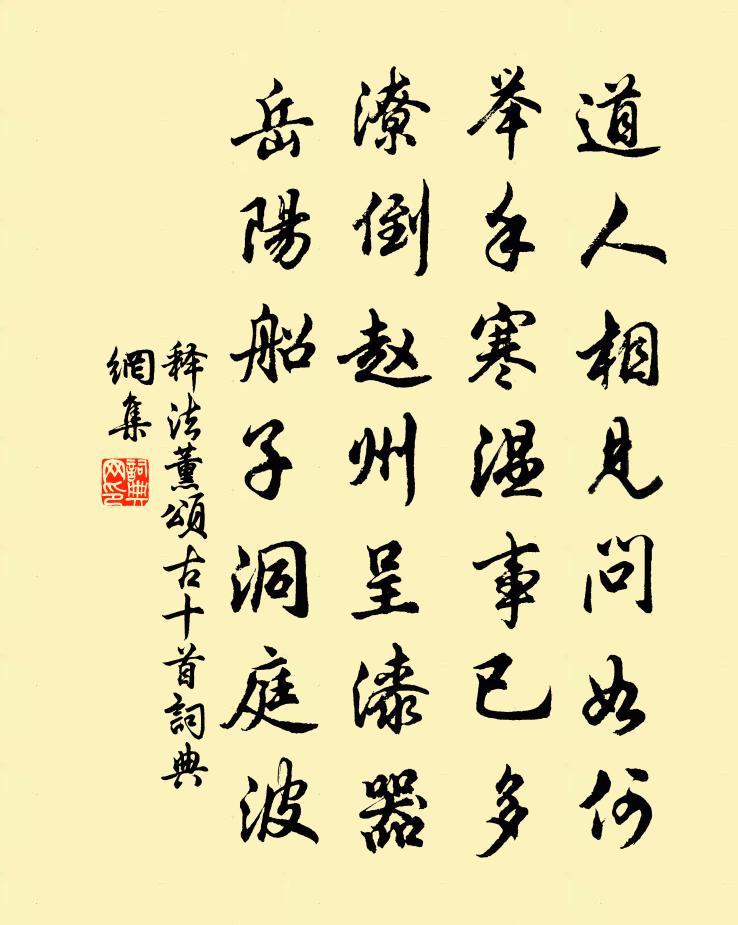 道人相見问如何
举手寒温事已多
潦倒赵州呈漆器
岳陽船子洞庭波
释法薰頌古十首詞典
網集
詞典网印